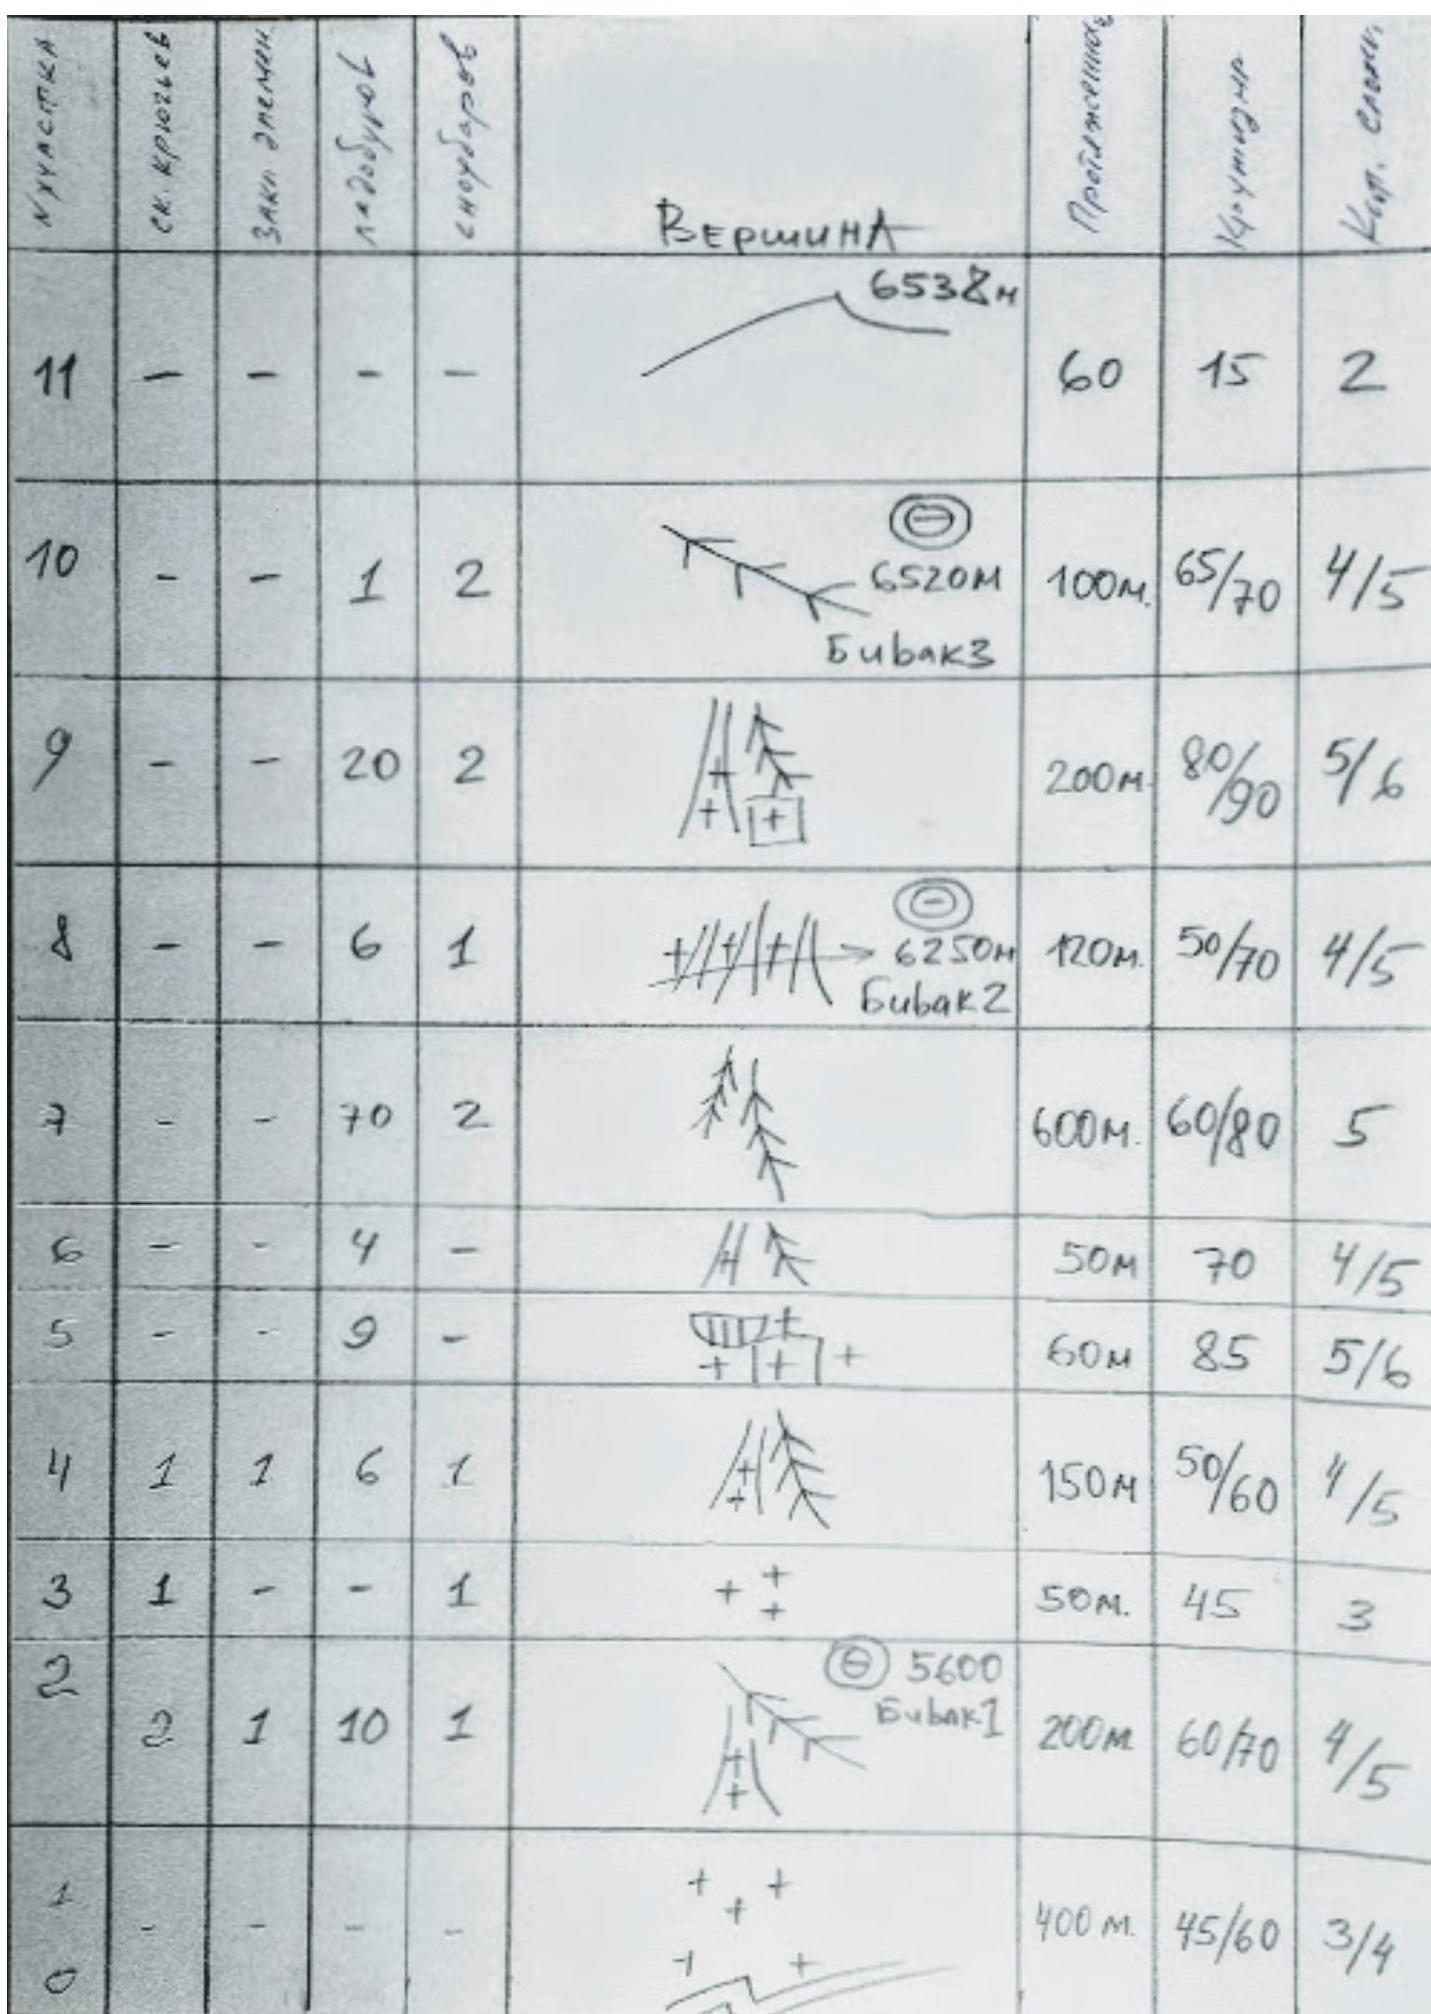 N участка ск. крючьев закл. элемен. ледобуров сноубаров Вершина Протяженность Крутизна Кат. сложн.
6538м
11 – – – – 60 15 2
10 – – 1 2 6520м 100м. 65/70 4/5
Бивак3
9 – – 20 2 200м. 80/90 5/6
8 – – 6 1 6250м 120м. 50/70 4/5
Бивак2
7 – – 70 2 600м. 60/80 5
6 – – 4 – 50м 70 4/5
5 – – 9 – 60м 85 5/6
4 1 1 6 1 150м 50/60 4/5
3 1 – – 1 50м. 45 3
2 5600
Бивак1
2 1 10 1 200м 60/70 4/5
1
– – – – 400м. 45/60 3/4
0